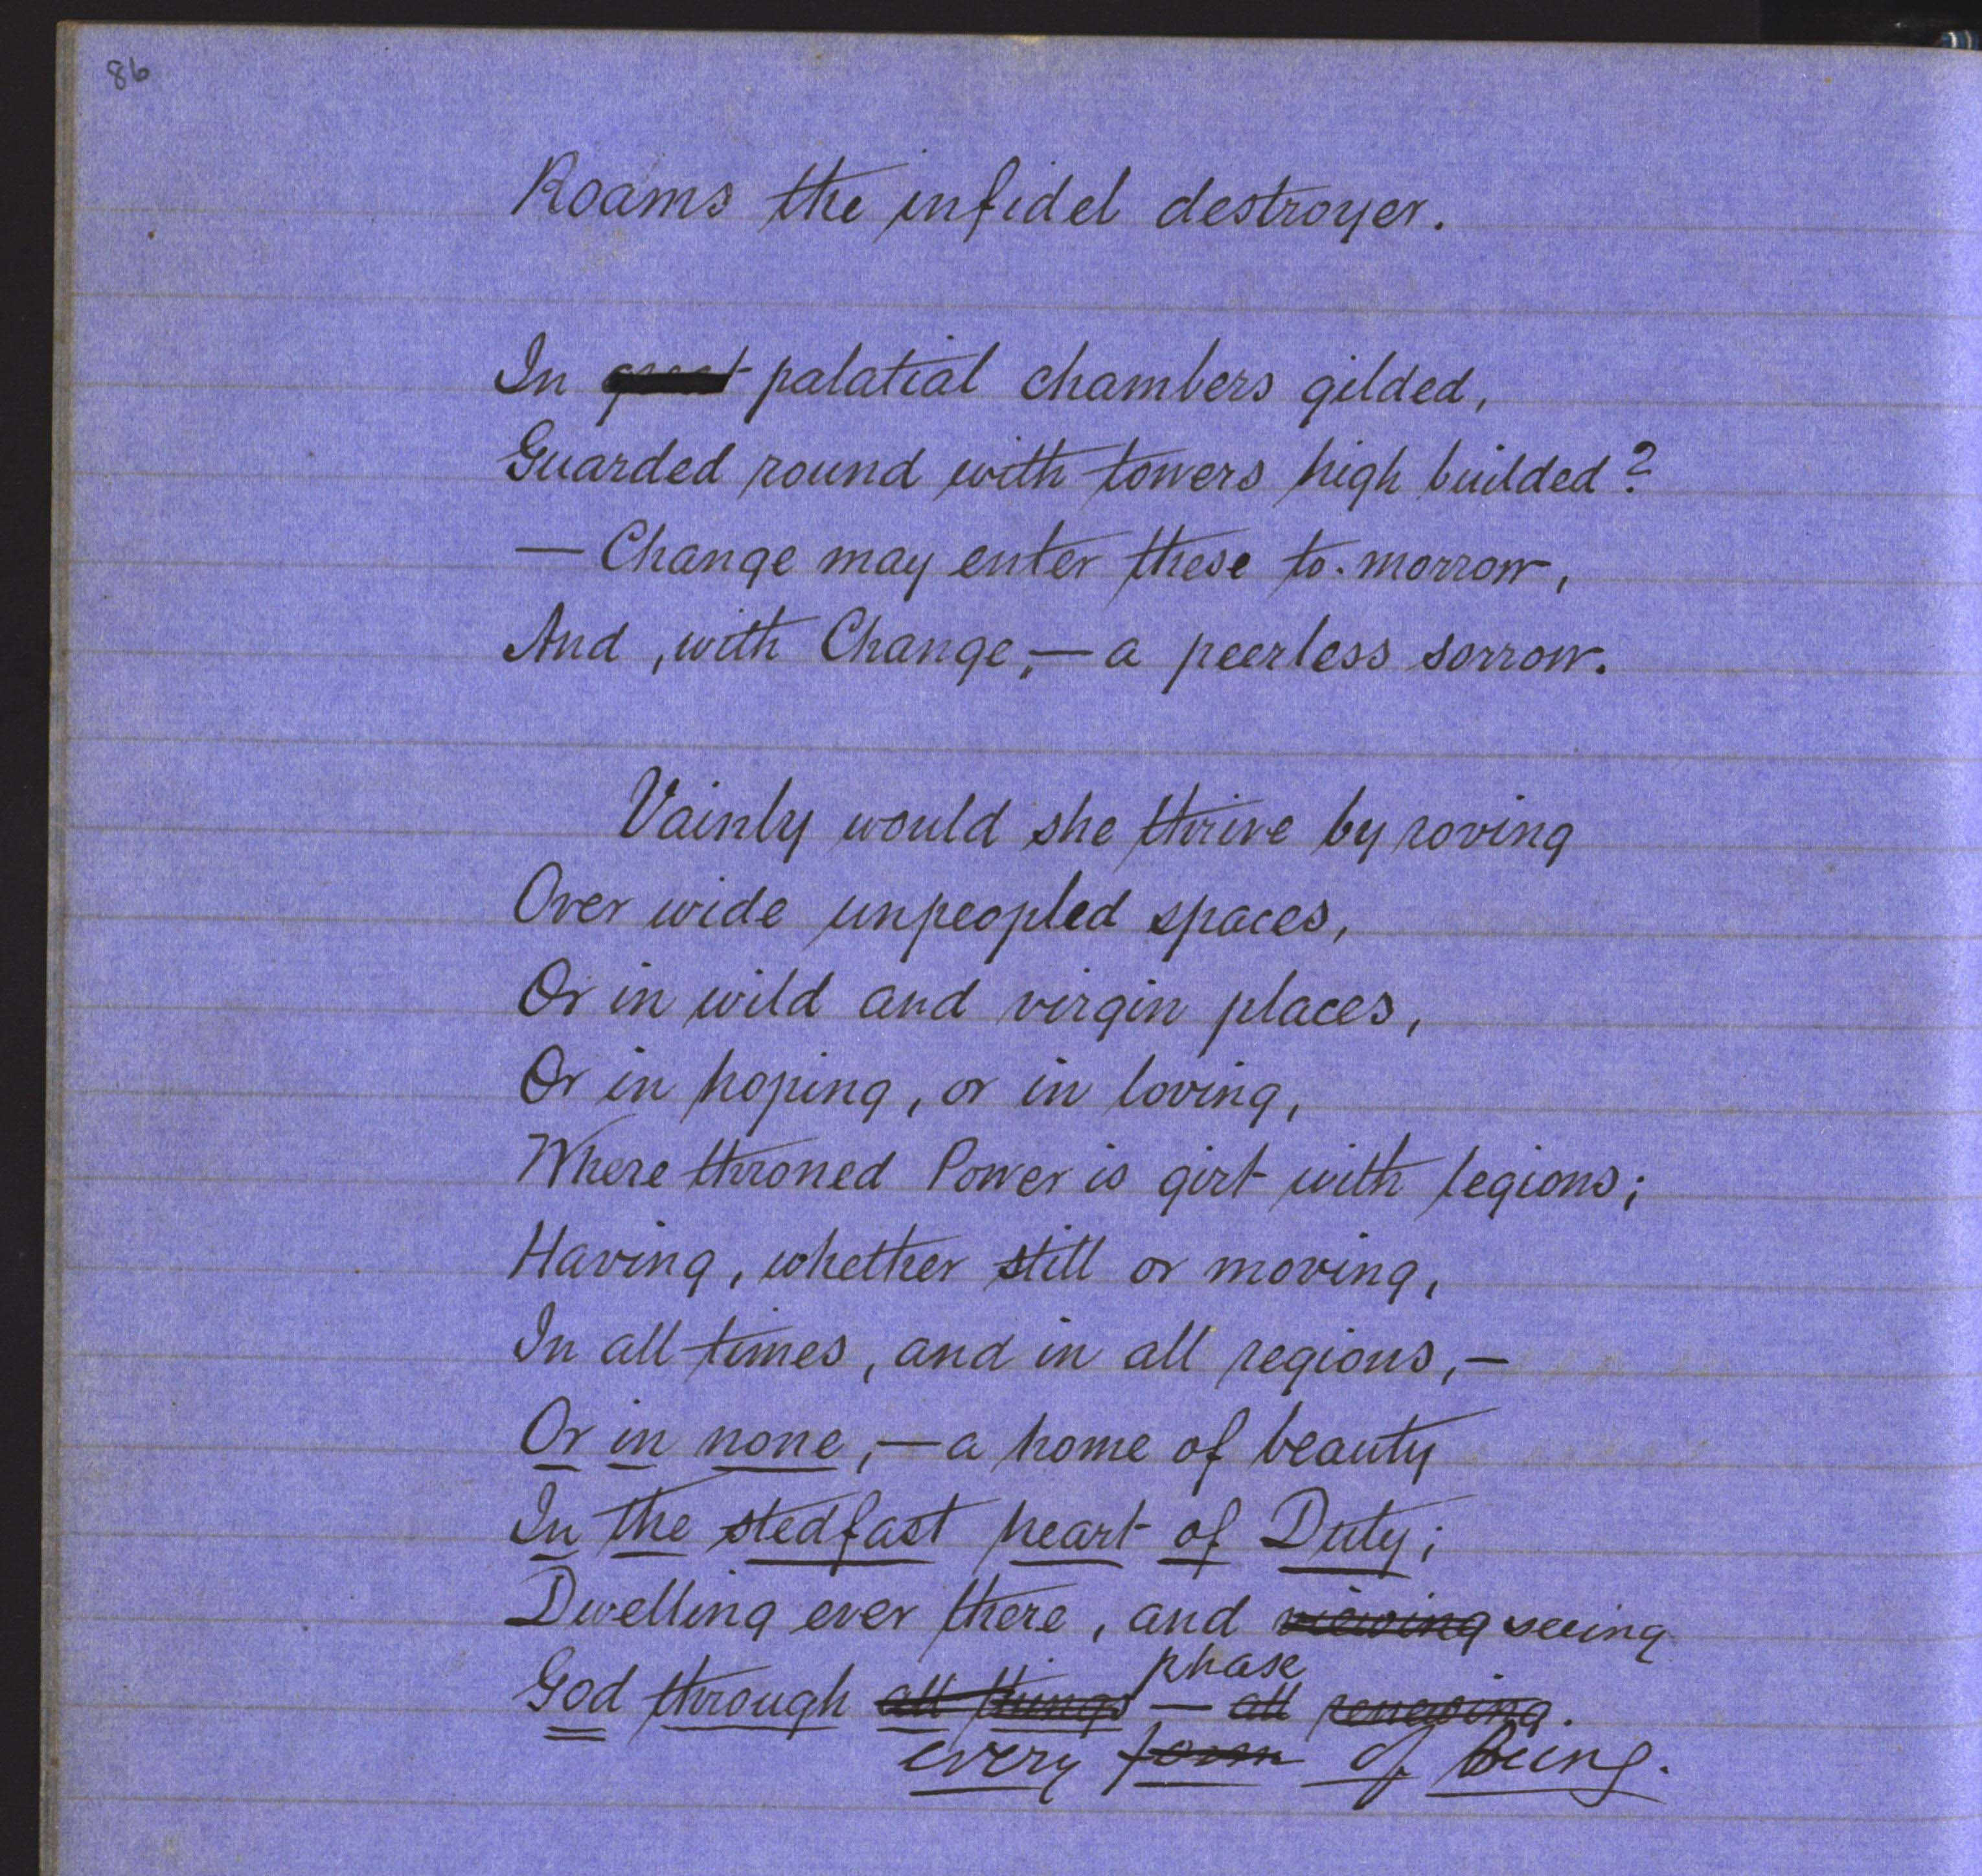 86
Roams the infidel destroyer.
In great palatial chambers gilded,
Guarded round with towers high builded?
— Change may enter these to-morrow,
And, with Change, — a peerless sorrow.
Vainly would she thrive by roving
Over wide unpeopled spaces,
Or in wild and virgin places,
Or in hoping, or in loving,
Where throned Power is girt with legions;
Having, whether still or moving,
In all times, and in all regions, —
Or in none, — a home of beauty
In the stedfast heart of Duty;
Dwelling ever there, and viewing seeing
phase
God through all things — all renewing.
every form of Being.